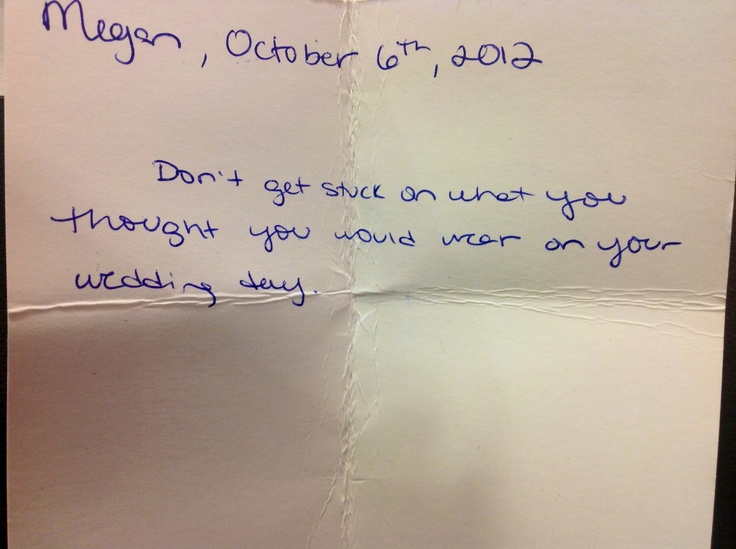 Megan, October 6th, 2012
Don't get stuck on what you
thought you would wear on your
wedding day.